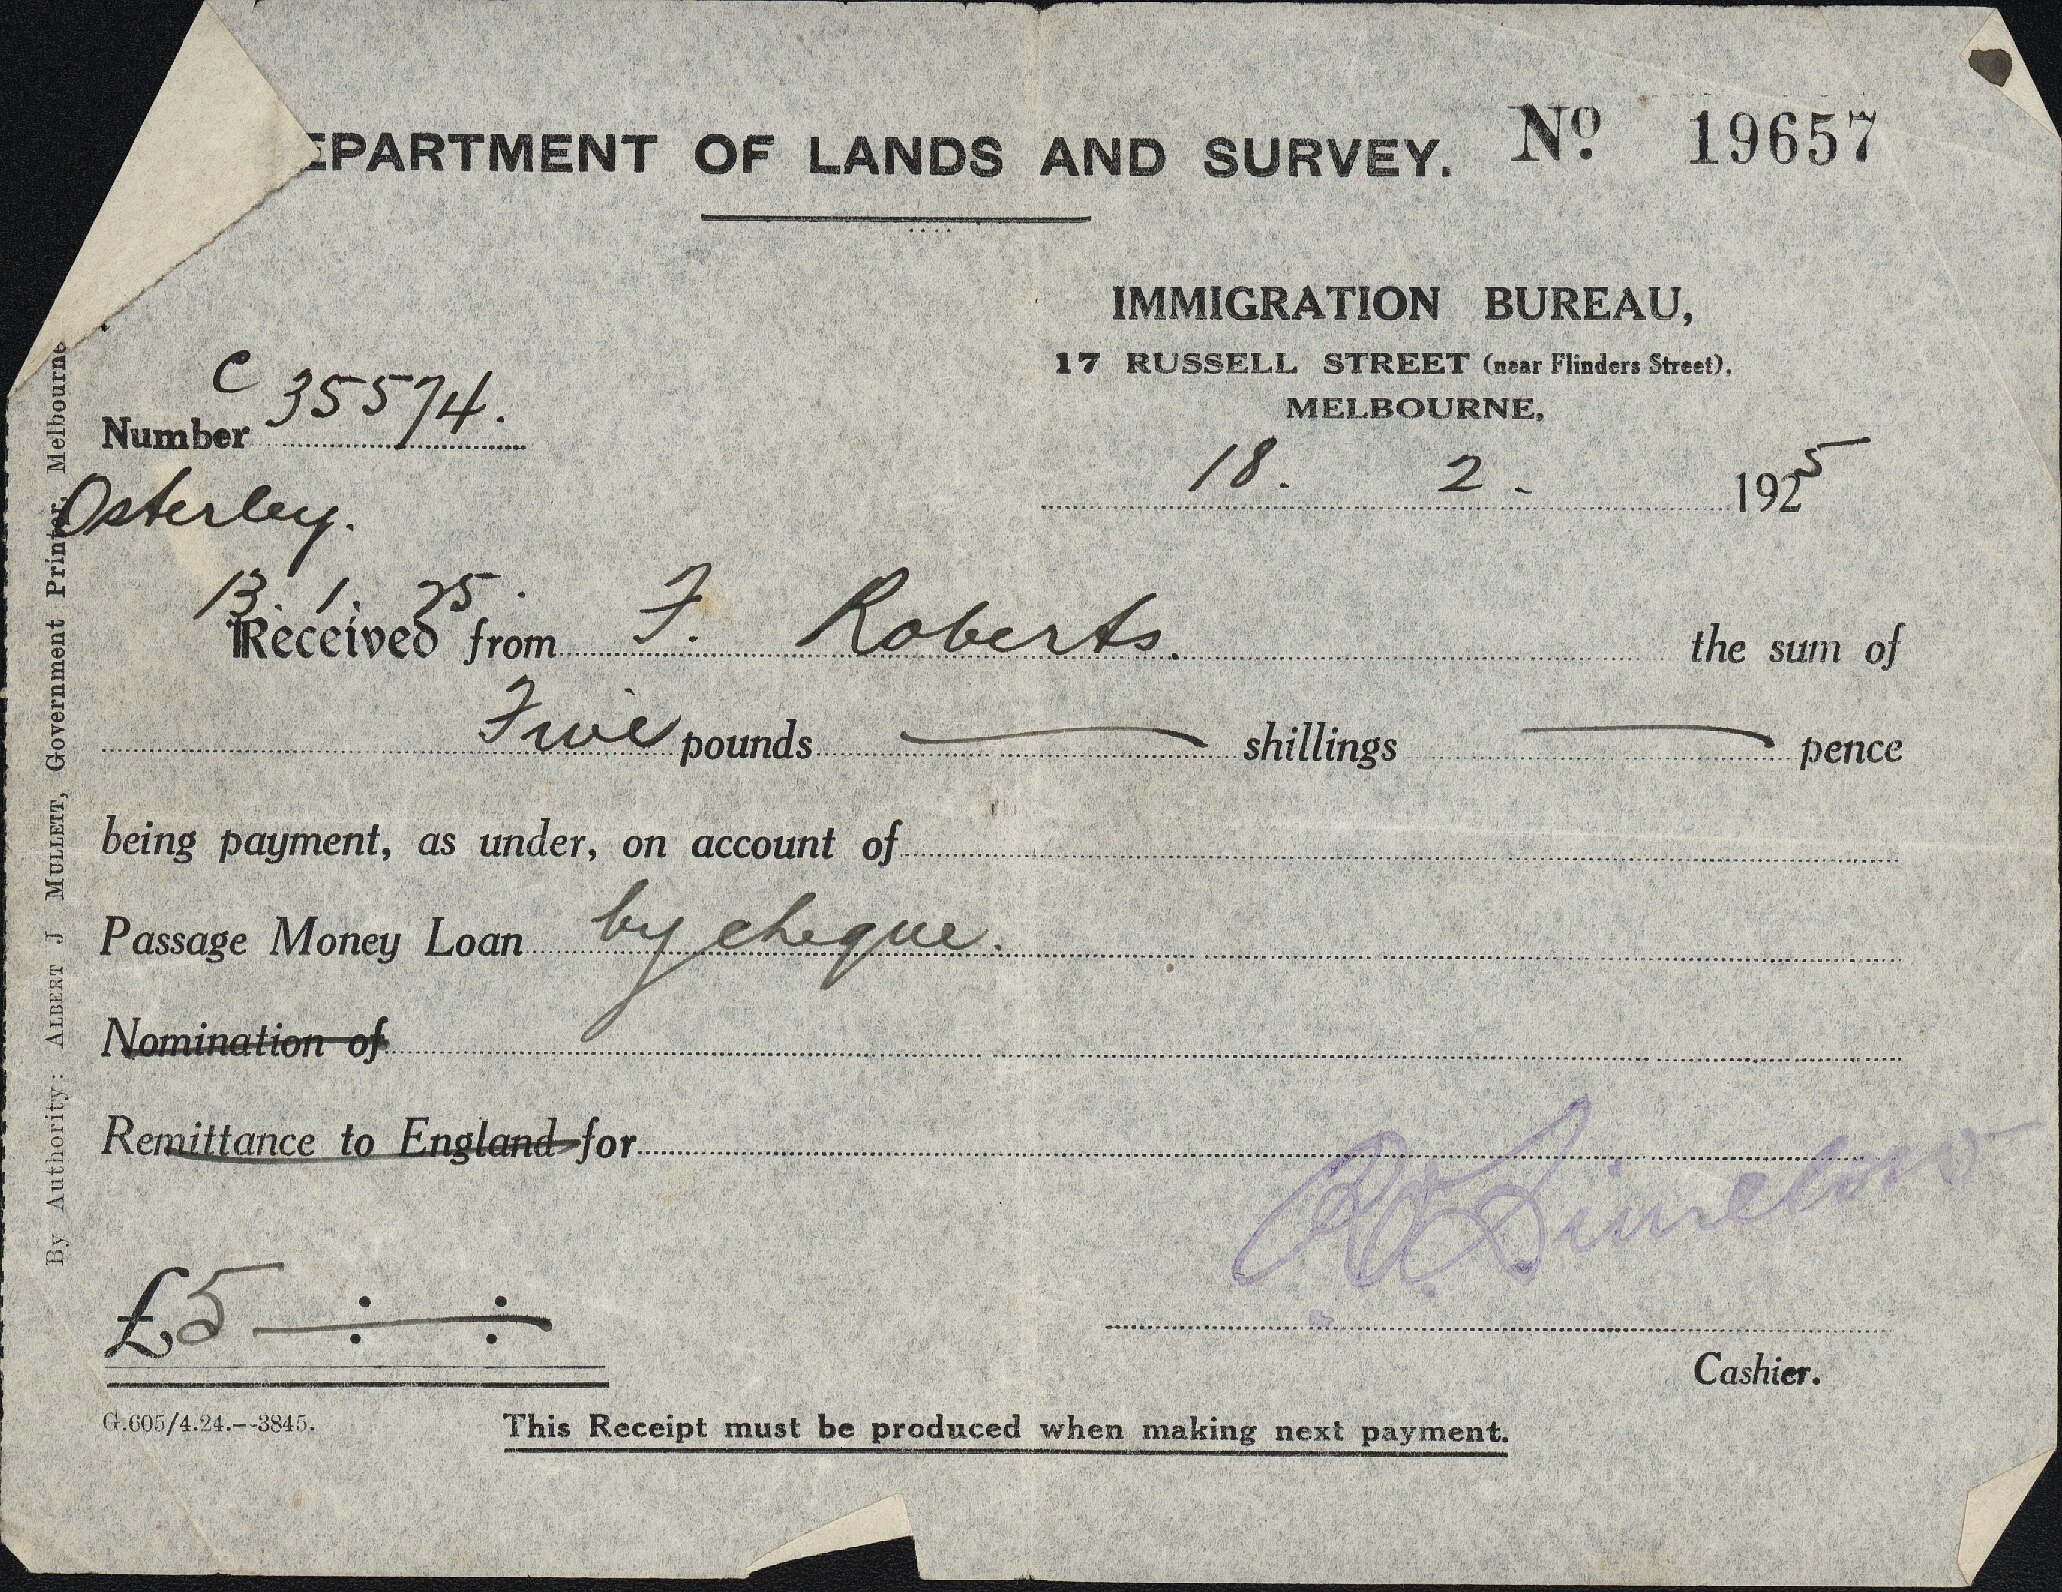 EPARTMENT OF LANDS AND SURVEY. No. 19657
IMMIGRATION BUREAU,
17 RUSSELL STREET (near Flinders Street),
MELBOURNE,
C
Number 35574.
18. 2. 1925
Osterley.
13. 1. 25.
Received from F. Roberts. the sum of
Five pounds shillings pence
being payment, as under, on account of
Passage Money Loan by cheque.
Nomination of
Remittance to England for
£5 : :
Cashier.
G.605/4.24.--3845.
This Receipt must be produced when making next payment.
By Authority: ALBERT J MULLETT, Government Printer, Melbourne